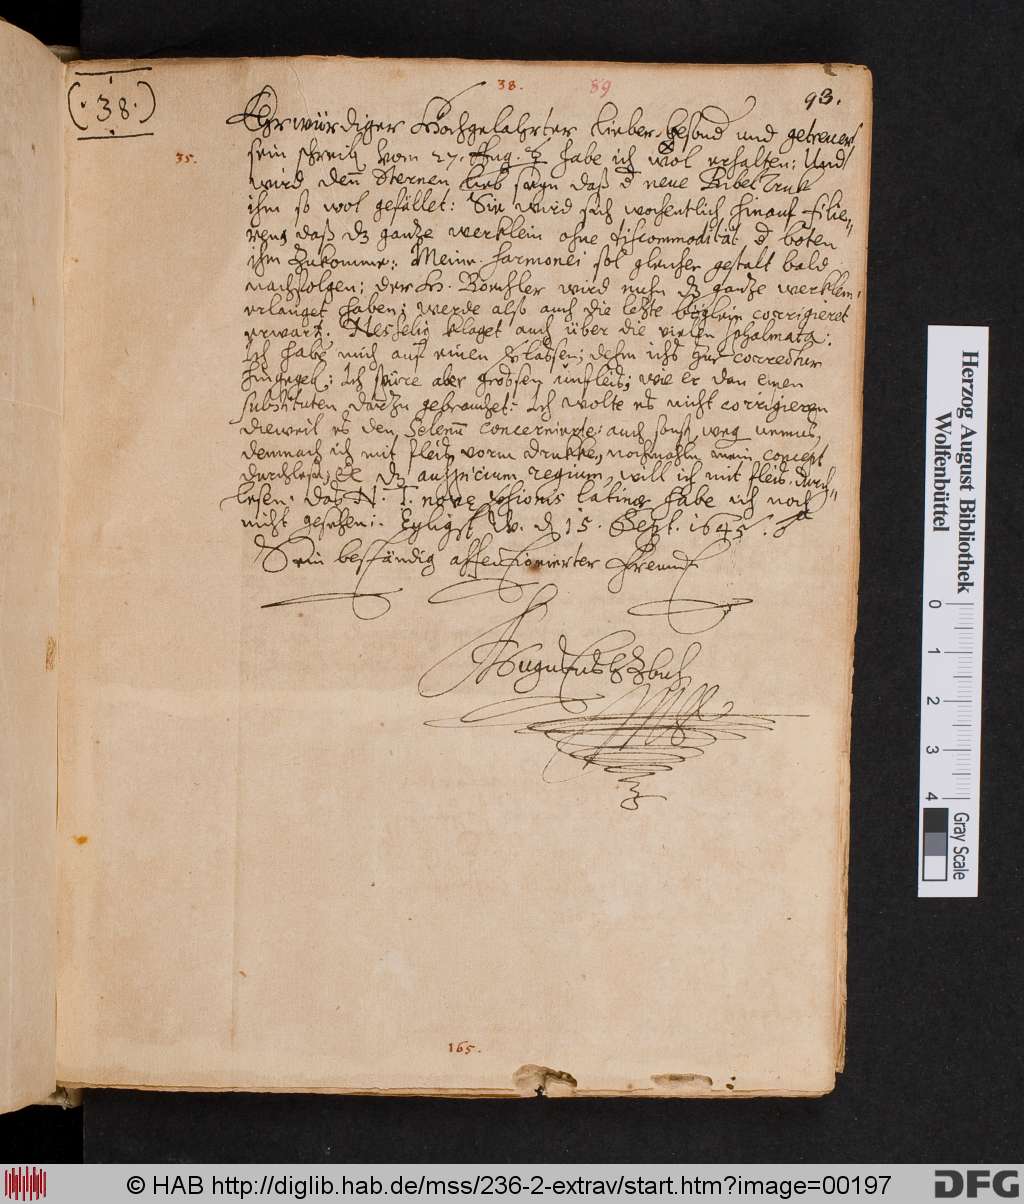 (.38.)
38. 89 93.
Ehrwürdiger Hochgelahrter lieber besond und getreuer
35.
sein schreib vom 27. Aug. habe ich wol erhalten: Und
wird den Sternen lieb seyn daß d neue Bibel Druk
ihm so wol gefället: Sie wird sich wochentlich hinauf
daß dz ganze werklein ohne discommodität d boten
ihm zukomme: Meine harmonei sol gleicher gestalt bald
nachfolgen: der H. wird nuhn dz ganze werklein
erlanget haben; werde also auch die letzte böglein corrigieret
erwart. klaget auch über die vielen
Ich habe mich auf einen verlassen; dehm ichs zur correctur
hingegeb: Ich spüre aber grossen unfleis; wie er dan einen
substituten darzu gebrauchet: Ich wolte es nicht corrigieren
dieweil es den Selenum concerniret: auch sonst weg
demnach ich mit fleis vorm drukke, nochmahln mein concept
durchlesen; dz auspicium regium, will ich mit fleis durch
lesen. das N. T. novae versionis latinae habe ich noch
nicht gesehen: Eyligst W. d 15. Sept. 1645.
Sein beständig affectionierter Freund
Augustus HzBuL
165.
Herzog August Bibliothek
Wolfenbüttel
0 1 2 3 4
Gray Scale
© HAB http://diglib.hab.de/mss/236-2-extrav/start.htm?image=00197
DFG